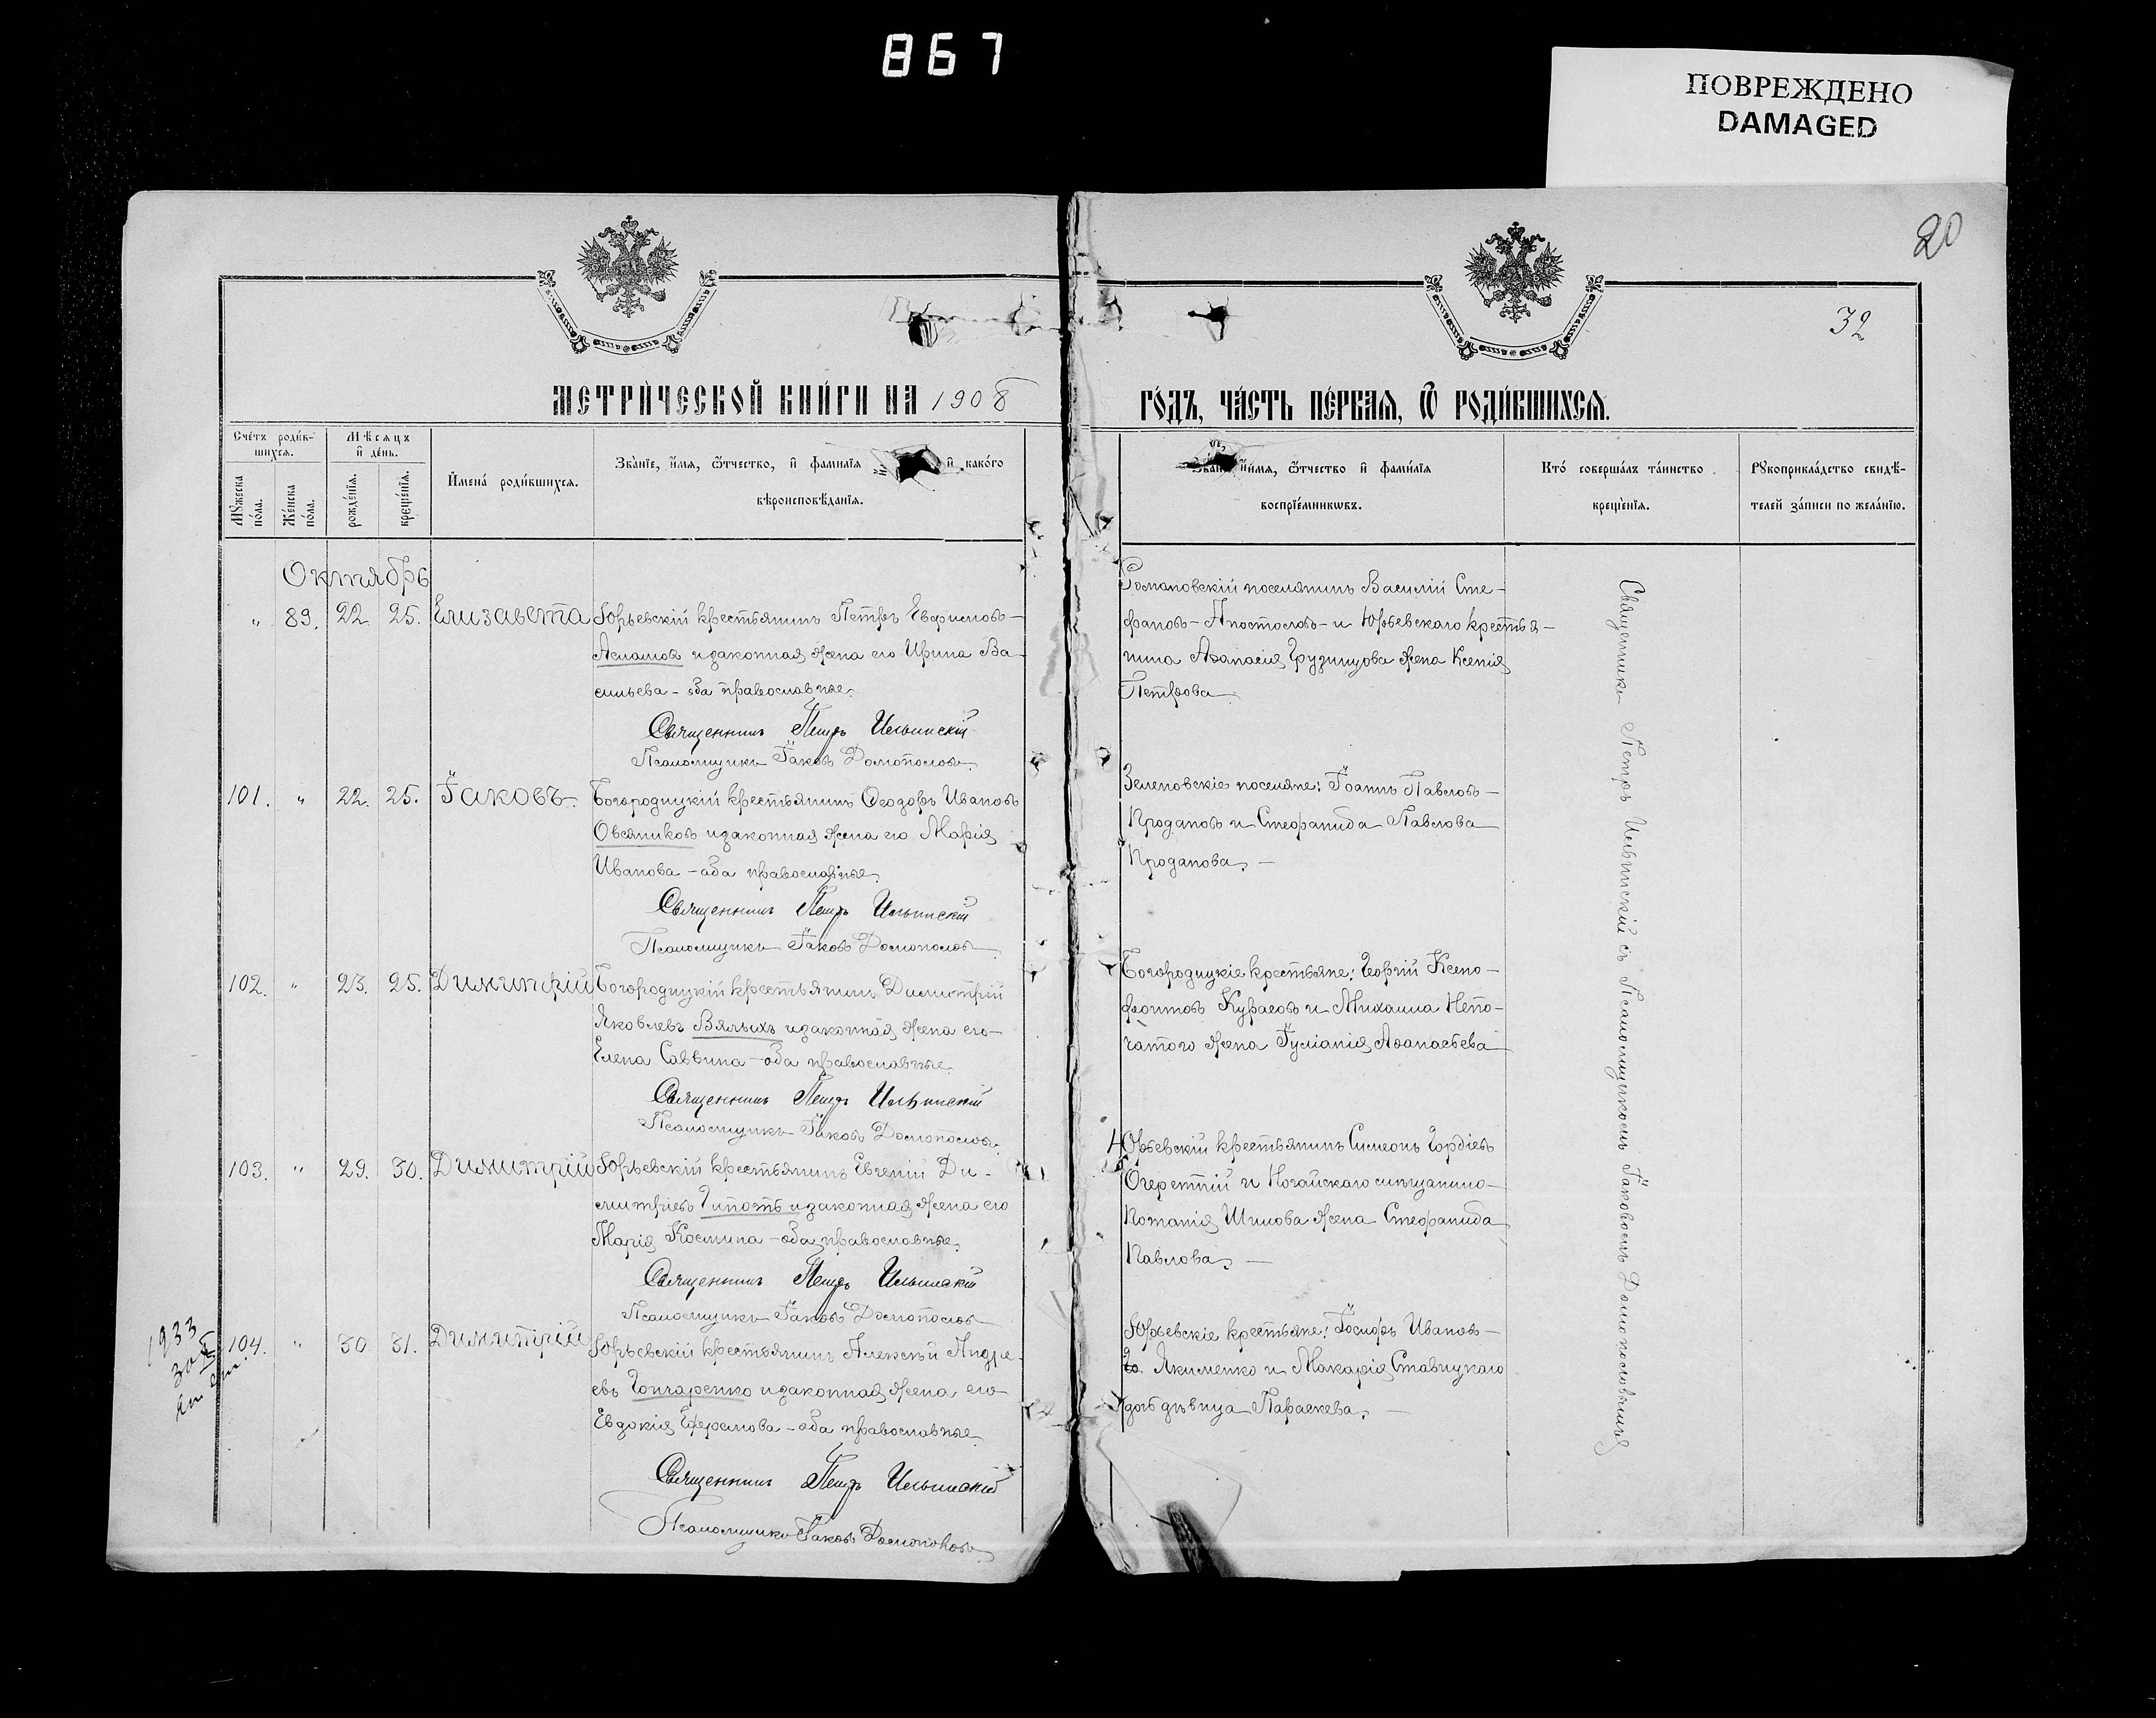 867
ПОВРЕЖДЕНО
DAMAGED
20
32
МЕТРИ́ЧЕСКОЙ КНИ́ГИ НА 1908
ГО́ДЪ, ЧА́СТЬ ПЕ́РВАЯ, Ѿ РОДИ́ВШИХСЯ.
Сче́тъ роди́в-
шихся.
Му́жеска по́ла.
Же́нска по́ла.
Мѣ́сяцъ
и҆ де́нь.
рожде́нїя.
креще́нїя.
И҆мена̀ роди́вшихся.
Зва́нїе, и҆́мя, ѻ҆́тчество, и҆ фами́лїя и҆ како́го
вѣроисповѣ́данїя.
и҆́мя, ѻ҆́тчество и҆ фами́лїя
воспрїе́мникѡвъ.
Кто̀ соверша́лъ та́инство
креще́нїя.
Рꙋкоприкла́дство свидѣ́-
телей за́писи по жела́нїю.
Октябрь
„ 89. 22. 25. Елизавета
Юрьевскій крестьянинъ Петръ Евфимовъ-
Асламовъ и законная жена его Ирина Ва-
сильева - оба православные.
Священникъ Петръ Ильинскій
Псаломщикъ Іаковъ Домонословъ
Романовскій поселянинъ Василій Сте-
фановъ - Апостоловъ - и Юрьевскаго крестья-
нина Аѳанасія Грузинцова жена Ксенія
Петрова
101. „ 22. 25. Іаковъ.
Богородицкій крестьянинъ Ѳеодоръ Ивановъ
Овсяниковъ и законная жена его Марія
Иванова - оба православные.
Священникъ Петръ Ильинскій
Псаломщикъ Іаковъ Домонословъ
Зеленовскіе поселяне: Іоаннъ Павловъ -
Продановъ и Стефанида Павлова
Проданова. -
102. „ 23. 25. Димитрій
Богородицкій крестьянинъ Димитрій
Яковлевъ Вялыхъ и законная жена его -
Елена Саввина - оба православные.
Священникъ Петръ Ильинскій
Псаломщикъ Іаковъ Домонословъ
Богородицкіе крестьяне: Георгій Ксено-
фонтовъ Курасовъ и Михаила Непо-
чатого жена Іуліанія Аѳанасьева
103. „ 29. 30. Димитрій
Юрьевскій крестьянинъ Евгеній Ди-
митріевъ Гипоть и законная жена его
Марія Космина - оба православные.
Священникъ Петръ Ильинскій
Псаломщикъ Іаковъ Домонословъ
Юрьевскій крестьянинъ Симеонъ Гордіевъ
Огереттій и Ногайскаго мѣщанина -
Потапія Шилова жена Стефанида
Павлова. -
1933
30
104. „ 30. 31. Димитрій
Юрьевскій крестьянинъ Алексѣй Андре-
евъ Гончаренко и законная жена его
Евдокія Ефремова - оба православные.
Священникъ Петръ Ильинскій
Псаломщикъ Іаковъ Домонословъ
Юрьевскіе крестьяне: Іосифъ Ивановъ -
Якименко и Макарія Ставицкаго
дочь дѣвица Параскева. -
Священникъ Петръ Ильинскій съ Псаломщикомъ Іаковомъ Домонословымъ